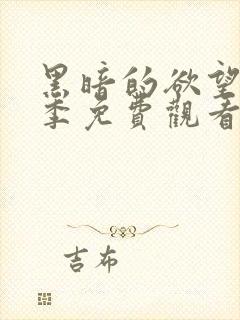 黑暗的欲望
季免費觀看
吉布